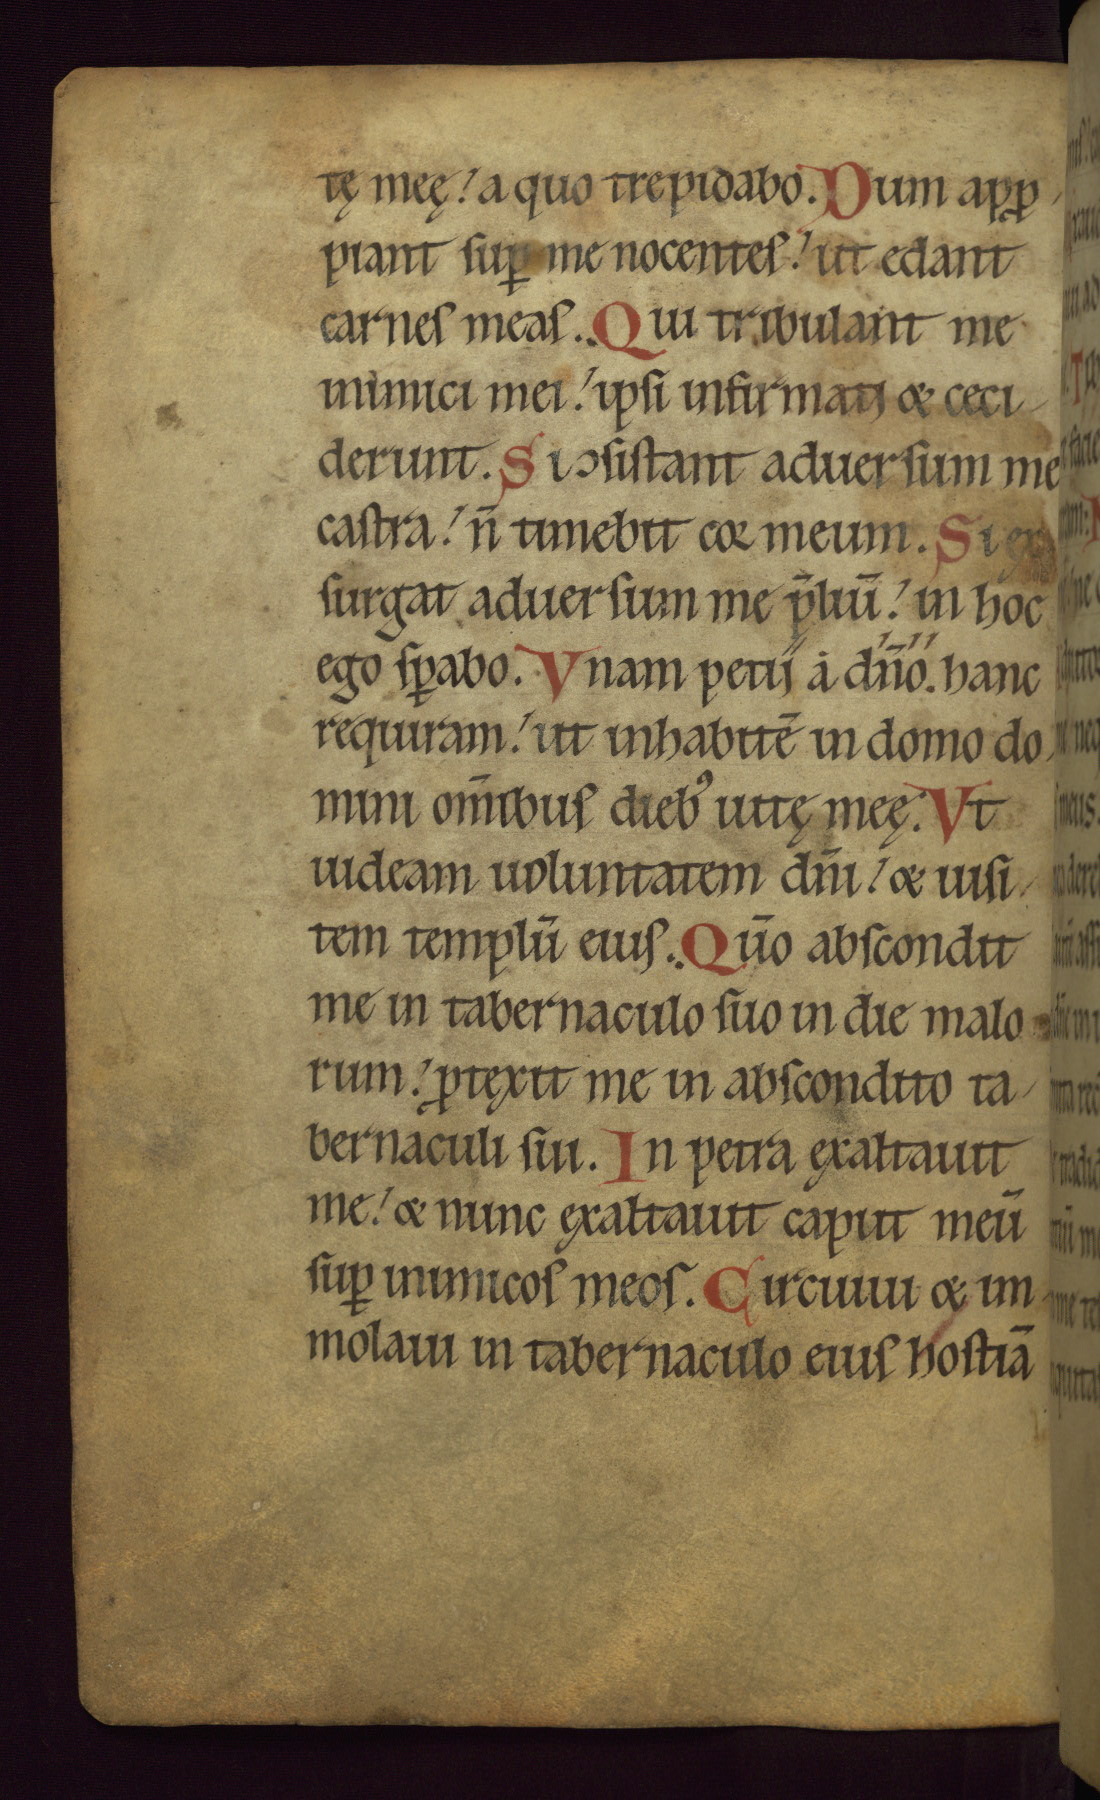 tę meę! a quo trepidabo. Dum app̱ꝓ
piant suꝑ me nocentes! ut edant
carnes meas. Qui tribulant me
inimici mei! ipsi infirmati & ceci
derunt. Si ɔsistant aduersum me
castra! n̄ timebit cor meum. Si ex
surgat aduersum me p̄liū! in hoc
ego sꝑabo. Vnam petii a dn̄o. hanc
requiram! ut inhabitē in domo do
mini om̄ibus dieb᾽ uitę meę. Vt
uideam uoluntatem dn̄i! & uisi
tem templū eius. Qūo abscondit
me in tabernaculo suo in die malo
rum! ꝓtexit me in abscondito ta
bernaculi sui. In petra exaltauit
me! & nunc exaltauit caput meū
suꝑ inimicos meos. Circuiui & im
molaui in tabernaculo eius hostiā